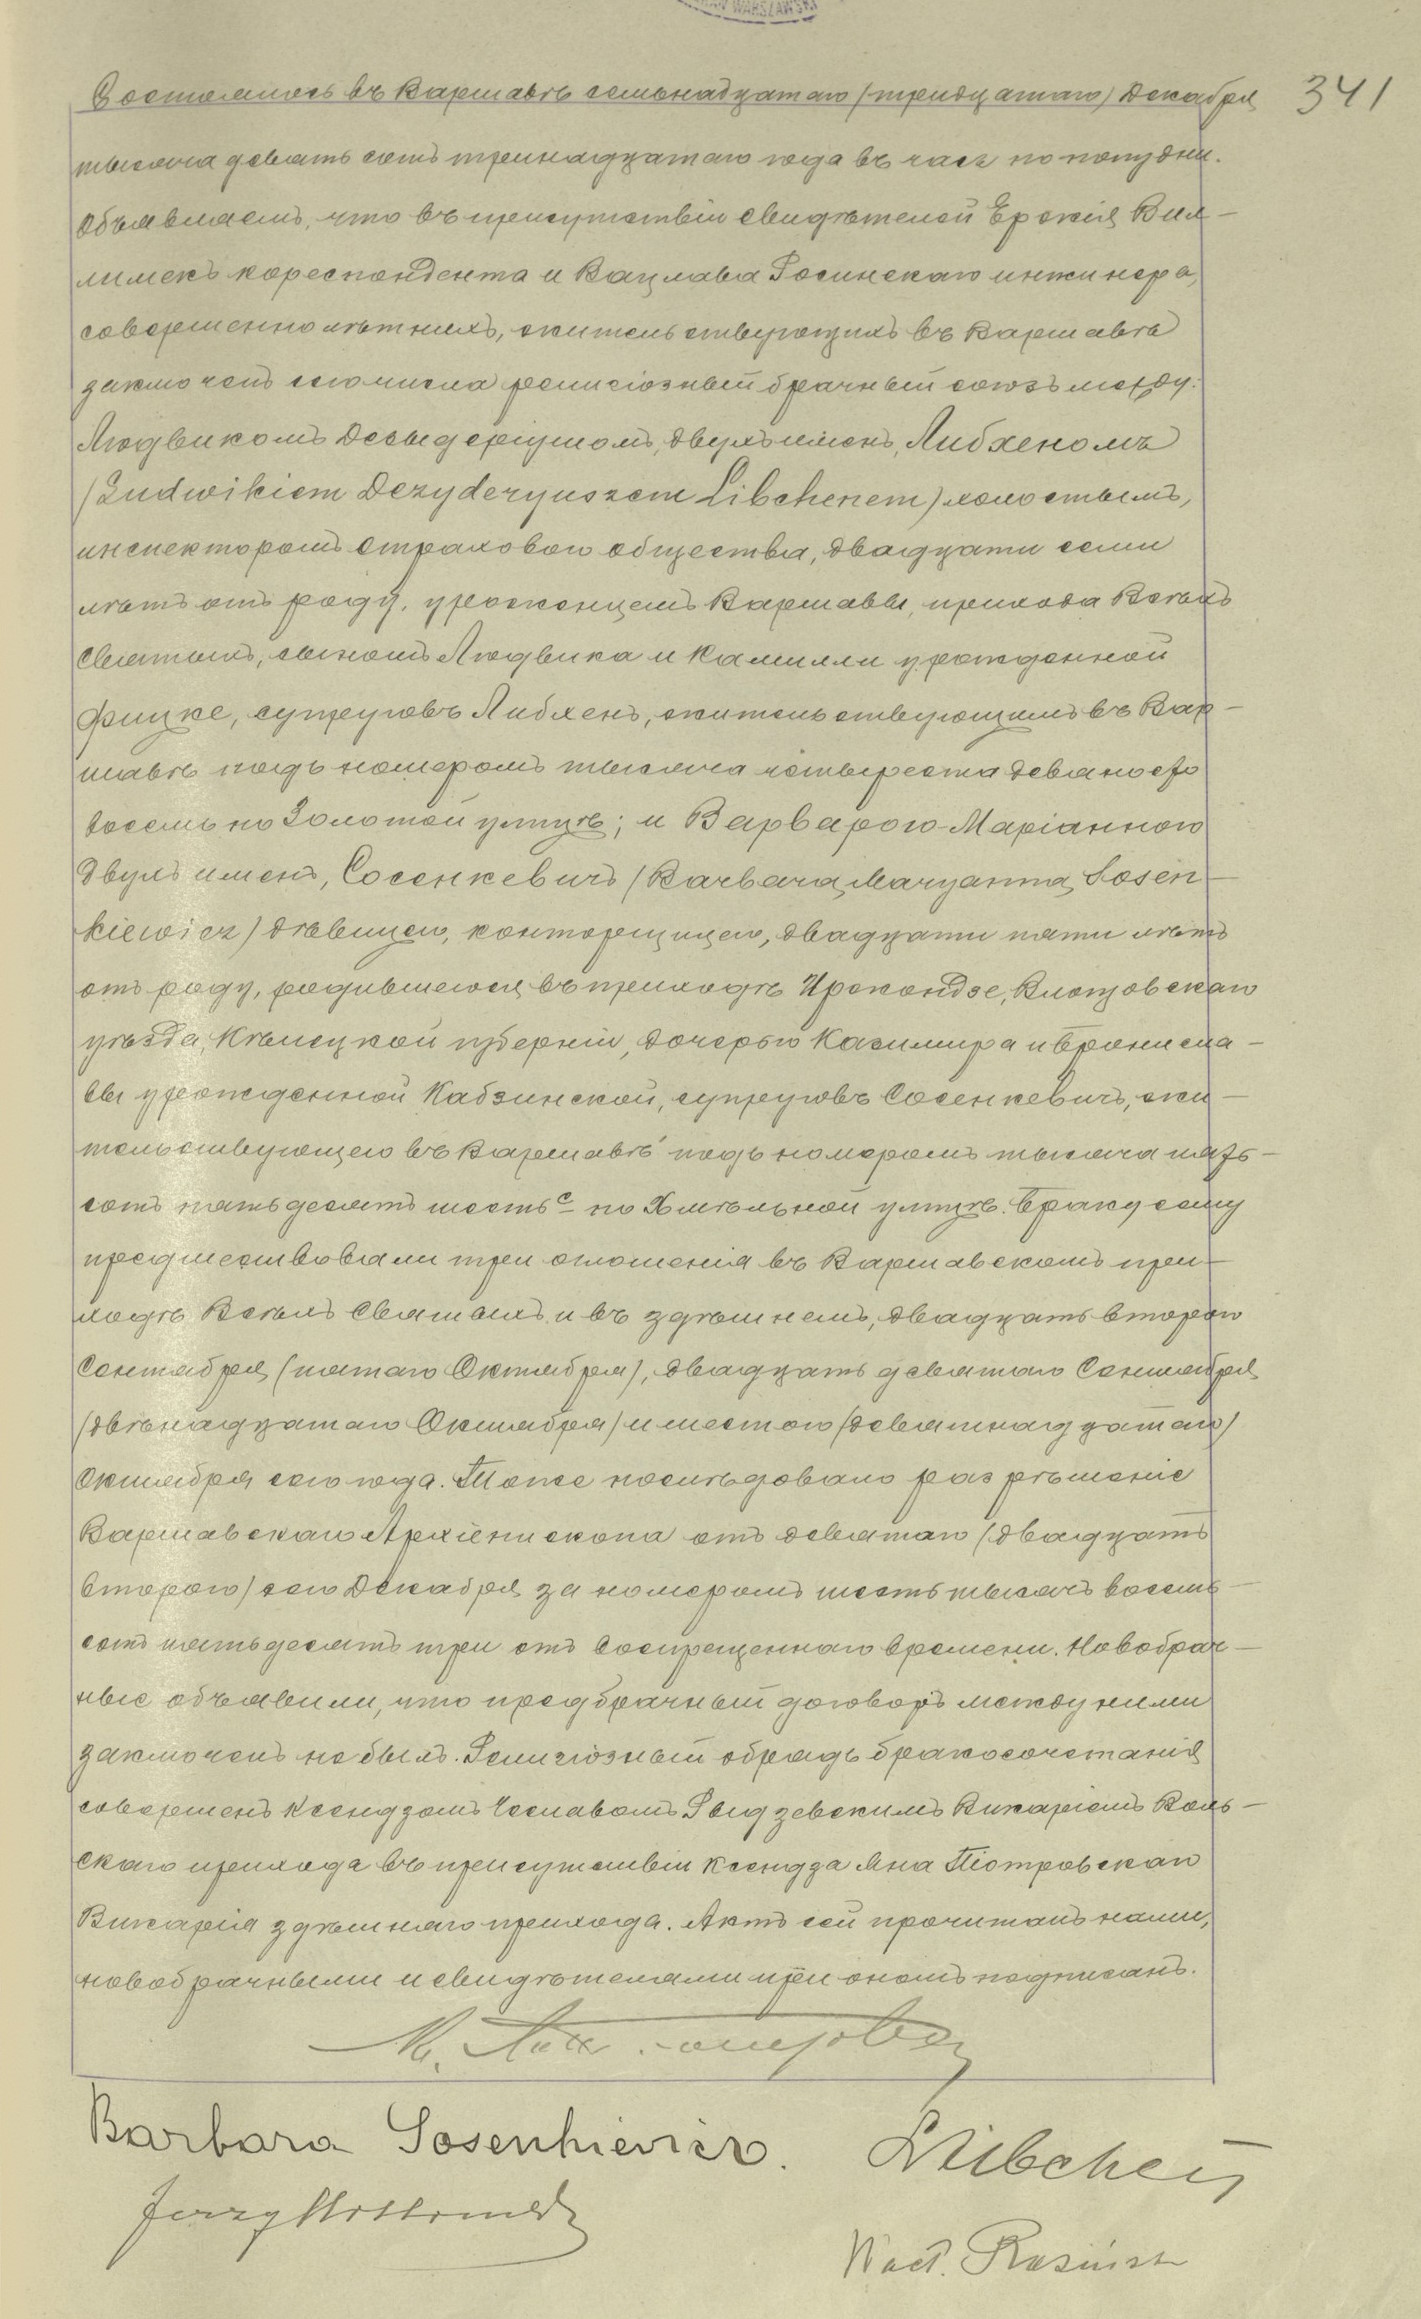 WARSZAWSKA
341
Состоялось въ Варшавѣ семьнадцатаго /тридцатаго/ Декабря
тысяча девять сотъ тринадцатаго года въ часъ по полудни.
Объявляемъ, что въ присутствіи свидѣтелей Ержія Вил-
лимекъ кореспондента и Вацлава Росинскаго инжинера,
совершеннолѣтнихъ, жительствующихъ въ Варшавѣ
заключенъ сего числа религіозный брачный союзъ между:
Людвикомъ Дезыдеріушомъ, двухъ именъ, Либхеномъ
/Ludwikiem Dezyderyuszem Libchenem/ холостымъ,
инспекторомъ страховаго общества, двадцати семи
лѣтъ отъ роду, уроженцемъ Варшавы, прихода Всѣхъ
Святыхъ, сыномъ Людвика и Камилли урожденной
Фицке, супруговъ Либхенъ, жительствующимъ въ Вар-
шавѣ подъ номеромъ тысяча четыреста девяносто
восемь по Золотой улицѣ; и Варварою-Маріанною
двухъ именъ, Сосенкевичъ /Barbarą Maryanną Sosen-
kiewicz/ дѣвицею, конторщицею, двадцати пяти лѣтъ
отъ роду, родившеюся въ приходѣ Иржондзе, Влощовскаго
уѣзда, Кѣлецкой губерніи, дочерью Казимира и Брониcла-
вы урожденной Кабзинской, супруговъ Сосенкевичъ, жи-
тельствующею въ Варшавѣ подъ номеромъ тысяча пять-
сотъ пятьдесятъ шесть с по Хмѣльной улицѣ. Браку сему
предшествовали три оглашенія въ Варшавскомъ при-
ходѣ Всѣхъ Святыхъ и въ здѣшнемъ, двадцать второго
Сентября (пятаго Октября), двадцать девятаго Сентября
/двѣнадцатаго Октября/ и шестого /девятнадцатаго/
Октября сего года. Тоже послѣдовало разрѣшеніе
Варшавскаго Архіепископа отъ девятаго /двадцать
второго/ сего Декабря за номеромъ шесть тысячъ восемь-
сотъ пятьдесятъ три отъ воспрещеннаго времени. Новобрач-
ные объявили, что предбрачный договоръ между ними
заключенъ не былъ. Религіозный обрядъ бракосочетанія
совершенъ Ксендзомъ Чеславомъ Рвидзевскимъ Викаріемъ Воль-
скаго прихода въ присутствіи Ксендза Яна Піотровскаго
Викарія здѣшняго прихода. Актъ сей прочитанъ нами,
новобрачными и свидѣтелями при ономъ подписанъ.
Barbara Sosenkiewicz. LLibchen
Jerzy Willimek
Wacł. Rosiński